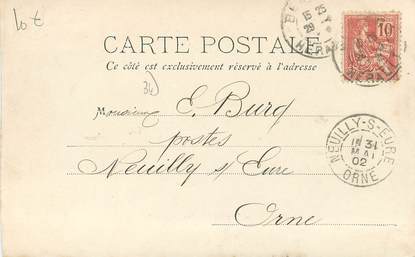 10 €
CARTE POSTALE
Ce côté est exclusivement réservé à l'adresse
34
Monsieur E. Burg
postes
Neuilly s/ Eure
Orne
10
NEUILLY-S-EURE
31
MAI
02
ORNE